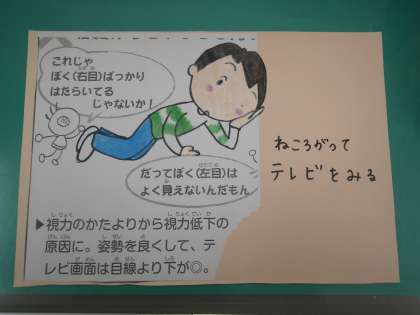 これじゃ
ぼく(右目)ばっかり
はたらいてる
じゃないか!
だってぼく(左目)は
よく見えないんだもん
▶視力のかたよりから視力低下の
原因に。姿勢を良くして、テ
レビ画面は目線より下が◎。
ねころがって
テレビをみる